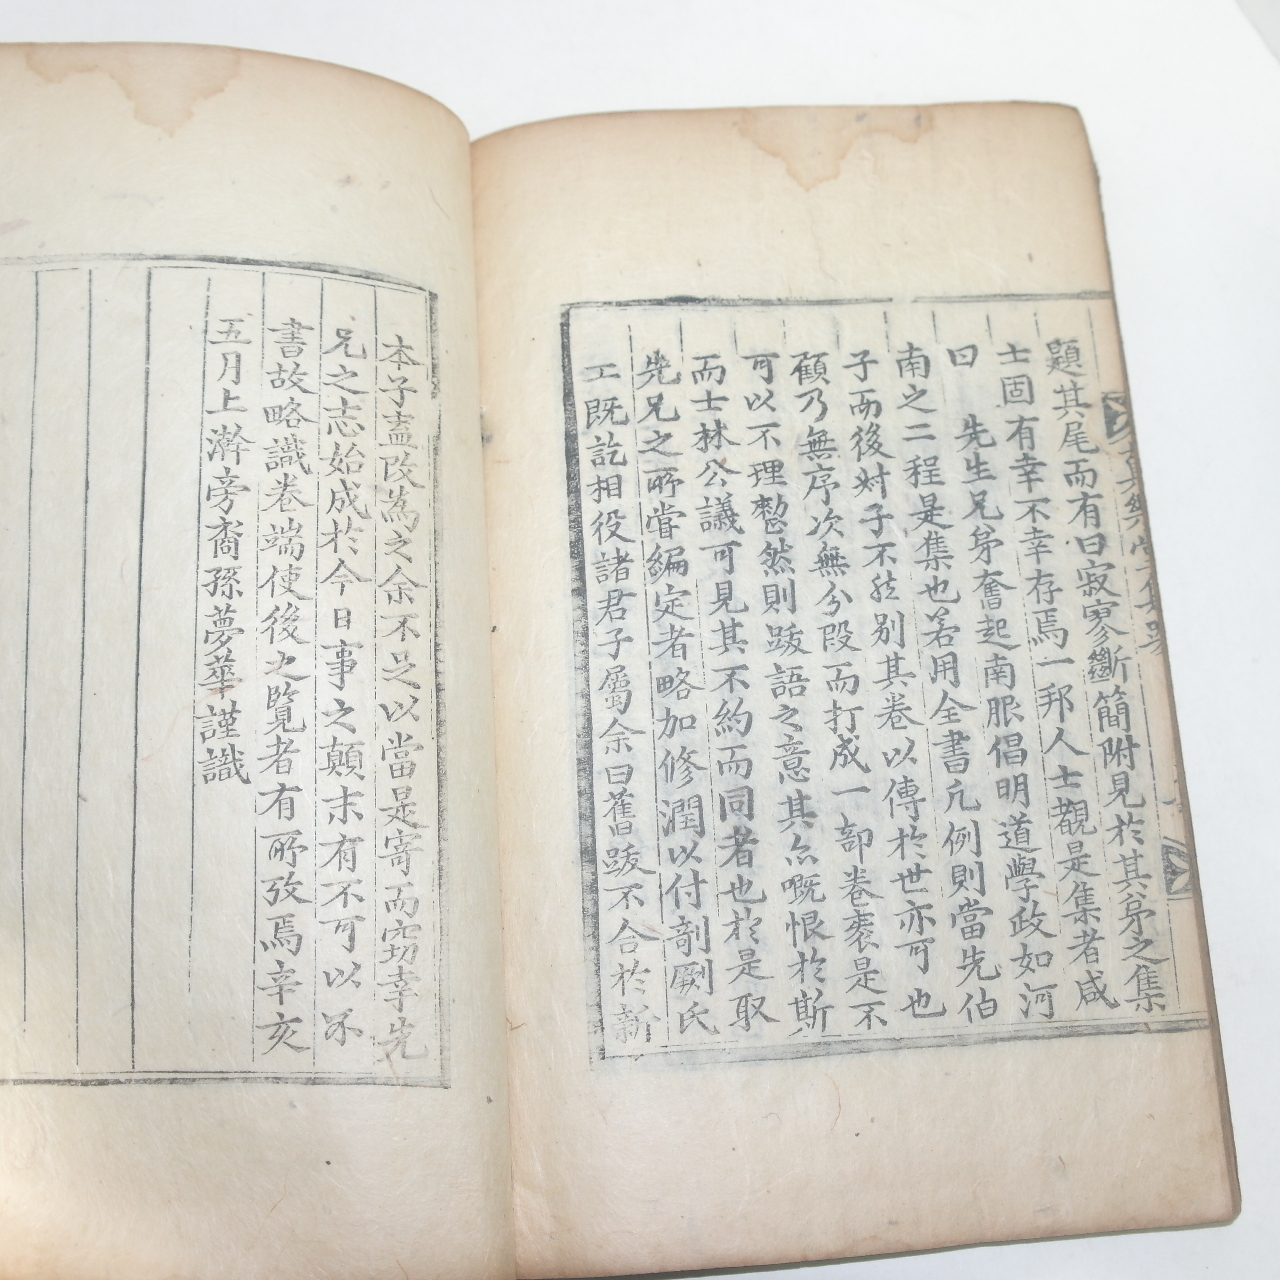 題其尾而有曰寂寥斷簡附見於其弟之集
士固有幸不幸存焉一邦人士覩是集者咸
曰 先生兄弟奮起南服倡明道學政如河
南之二程是集也若用全書凡例則當先伯
子而後叔子不能別其卷以傳於世亦可也
顧乃無序次無分段而打成一部卷袠是不
可以不理整然則跋語之意其亦嘅恨於斯
而士林公議可見其不約而同者也於是取
先兄之所嘗編定者略加修潤以付剞劂氏
工旣訖相役諸君子屬余曰舊跋不合於新
本子盍改爲之余不足以當是寄而窃幸先
兄之志始成於今日事之顚末有不可以不
書故略識卷端使後之覽者有所攷焉辛亥
五月上澣旁裔孫夢華謹識